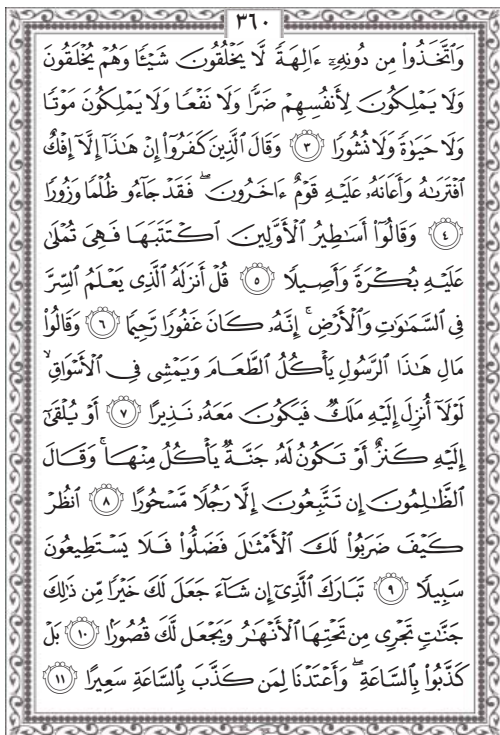 ٣٦٠
وَٱتَّخَذُوا۟ مِن دُونِهِۦٓ ءَالِهَةً لَّا يَخْلُقُونَ شَيْـًٔا وَهُمْ يُخْلَقُونَ
وَلَا يَمْلِكُونَ لِأَنفُسِهِمْ ضَرًّا وَلَا نَفْعًا وَلَا يَمْلِكُونَ مَوْتًا
وَلَا حَيَوٰةً وَلَا نُشُورًا ٣ وَقَالَ ٱلَّذِينَ كَفَرُوٓا۟ إِنْ هَـٰذَآ إِلَّآ إِفْكٌ
ٱفْتَرَىٰهُ وَأَعَانَهُۥ عَلَيْهِ قَوْمٌ ءَاخَرُونَ ۖ فَقَدْ جَآءُو ظُلْمًا وَزُورًا
٤ وَقَالُوٓا۟ أَسَـٰطِيرُ ٱلْأَوَّلِينَ ٱكْتَتَبَهَا فَهِىَ تُمْلَىٰ
عَلَيْهِ بُكْرَةً وَأَصِيلًا ٥ قُلْ أَنزَلَهُ ٱلَّذِى يَعْلَمُ ٱلسِّرَّ
فِى ٱلسَّمَـٰوَٰتِ وَٱلْأَرْضِ ۚ إِنَّهُۥ كَانَ غَفُورًا رَّحِيمًا ٦ وَقَالُوا۟
مَالِ هَـٰذَا ٱلرَّسُولِ يَأْكُلُ ٱلطَّعَامَ وَيَمْشِى فِى ٱلْأَسْوَاقِ ۙ
لَوْلَآ أُنزِلَ إِلَيْهِ مَلَكٌ فَيَكُونَ مَعَهُۥ نَذِيرًا ٧ أَوْ يُلْقَىٰٓ
إِلَيْهِ كَنزٌ أَوْ تَكُونُ لَهُۥ جَنَّةٌ يَأْكُلُ مِنْهَا ۚ وَقَالَ
ٱلظَّـٰلِمُونَ إِن تَتَّبِعُونَ إِلَّا رَجُلًا مَّسْحُورًا ٨ ٱنظُرْ
كَيْفَ ضَرَبُوا۟ لَكَ ٱلْأَمْثَـٰلَ فَضَلُّوا۟ فَلَا يَسْتَطِيعُونَ
سَبِيلًا ٩ تَبَارَكَ ٱلَّذِىٓ إِن شَآءَ جَعَلَ لَكَ خَيْرًا مِّن ذَٰلِكَ
جَنَّـٰتٍ تَجْرِى مِن تَحْتِهَا ٱلْأَنْهَـٰرُ وَيَجْعَل لَّكَ قُصُورًۢا ١٠ بَلْ
كَذَّبُوا۟ بِٱلسَّاعَةِ ۖ وَأَعْتَدْنَا لِمَن كَذَّبَ بِٱلسَّاعَةِ سَعِيرًا ١١